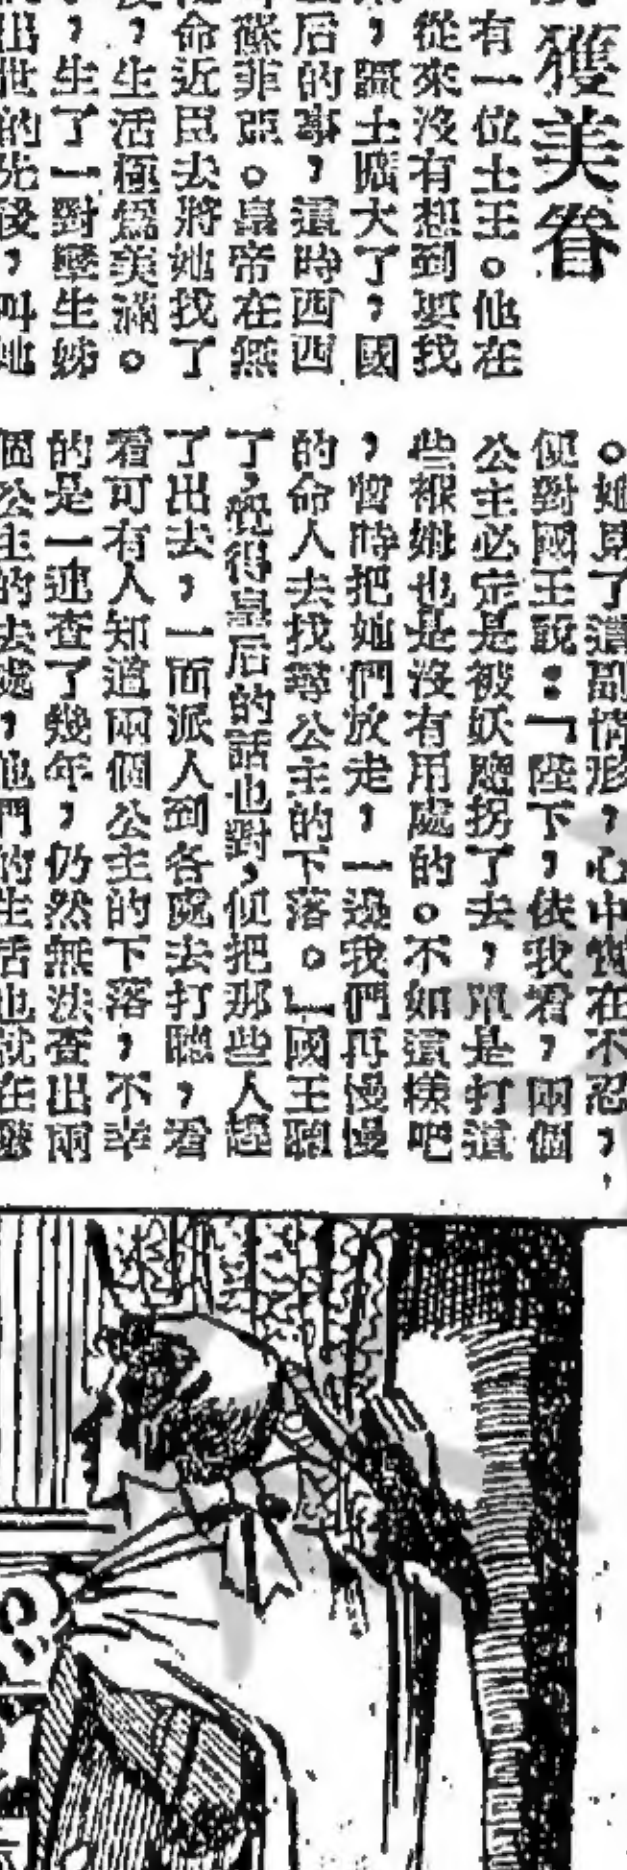 獲美眷
有一位土王。他在
從來沒有想到要找
,疆土擴大了,國
后的事,這時西西
蘇菲亞。皇帝在無
命近臣去將她找了
,生活極爲美滿。
,生了一對孿生姊
出世的先後,叫她
。她見了這副情形,心中實在不忍,
便對國王說:「陛下,依我看,兩個
公主必定是被妖魔拐了去,單是打這
些褓姆也是沒有用處的。不如這樣吧
,暫時把她們放走,一邊我們再慢慢
的命人去找尋公主的下落。」國王聽
了,覺得皇后的話也對,便把那些人趕
了出去,一面派人到各處去打聽,看
看可有人知道兩個公主的下落,不幸
的是一連查了幾年,仍然無法查出兩
個公主的去處,他們的生活也就在